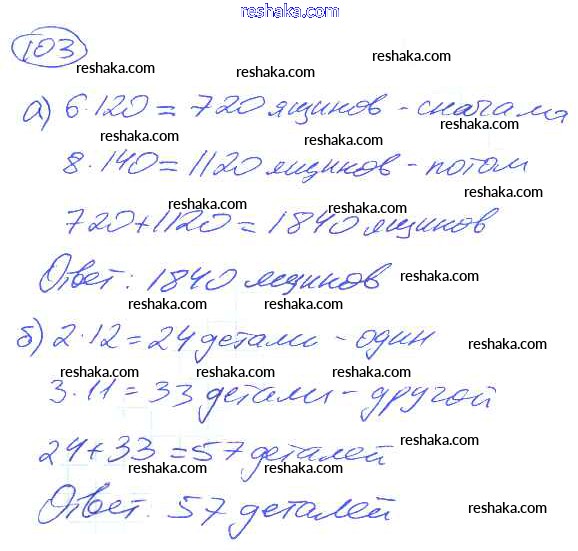 reshaka.com
103
reshaka.com reshaka.com reshaka.com
а) 6·120=720 ящиков - сначала
reshaka.com reshaka.com reshaka.com
8·140=1120 ящиков - потом
reshaka.com reshaka.com reshaka.com
720+1120=1840 ящиков
Ответ: 1840 ящиков
reshaka.com reshaka.com reshaka.com
б) 2·12=24 детали - один
reshaka.com
reshaka.com reshaka.com reshaka.com
3·11=33 детали - другой
24+33=57 деталей
reshaka.com reshaka.com reshaka.com
Ответ: 57 деталей
reshaka.com